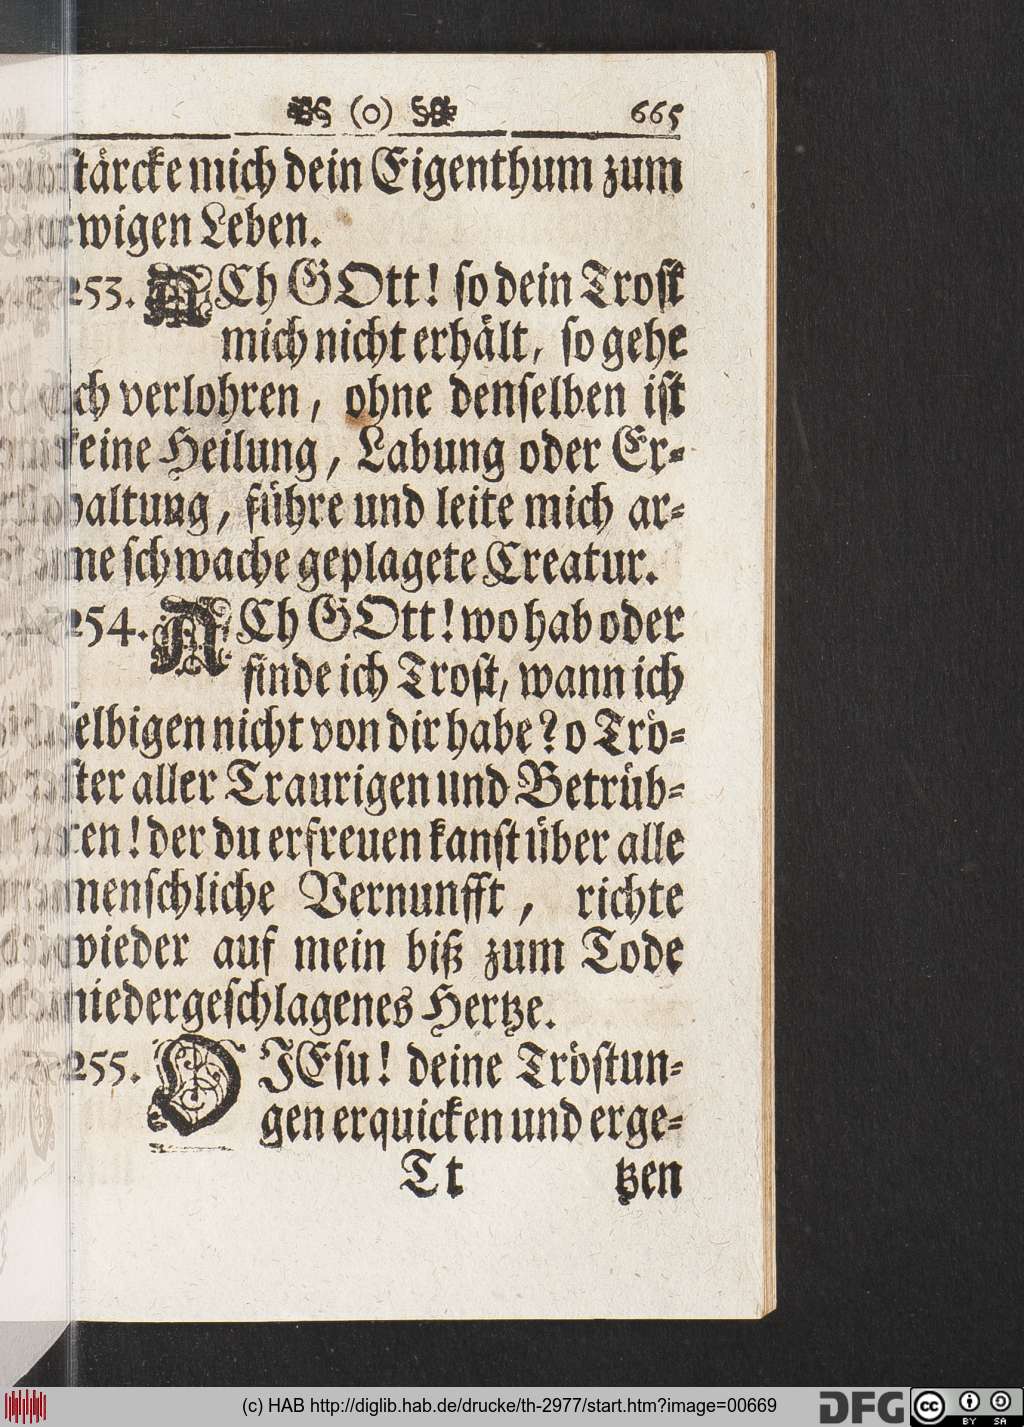 (o) 665
stärcke mich dein Eigenthum zum
ewigen Leben.
253. ACh GOtt! so dein Trost
mich nicht erhält, so gehe
ich verlohren, ohne denselben ist
keine Heilung, Labung oder Er-
haltung, führe und leite mich ar-
me schwache geplagete Creatur.
254. ACh GOtt! wo hab oder
finde ich Trost, wann ich
selbigen nicht von dir habe? o Trö-
ster aller Traurigen und Betrüb-
ten! der du erfreuen kanst über alle
menschliche Vernunfft, richte
wieder auf mein biß zum Tode
niedergeschlagenes Hertze.
255. O JEsu! deine Tröstun-
gen erquicken und erge-
Tt tzen
(c) HAB http://diglib.hab.de/drucke/th-2977/start.htm?image=00669
DFG cc BY SA